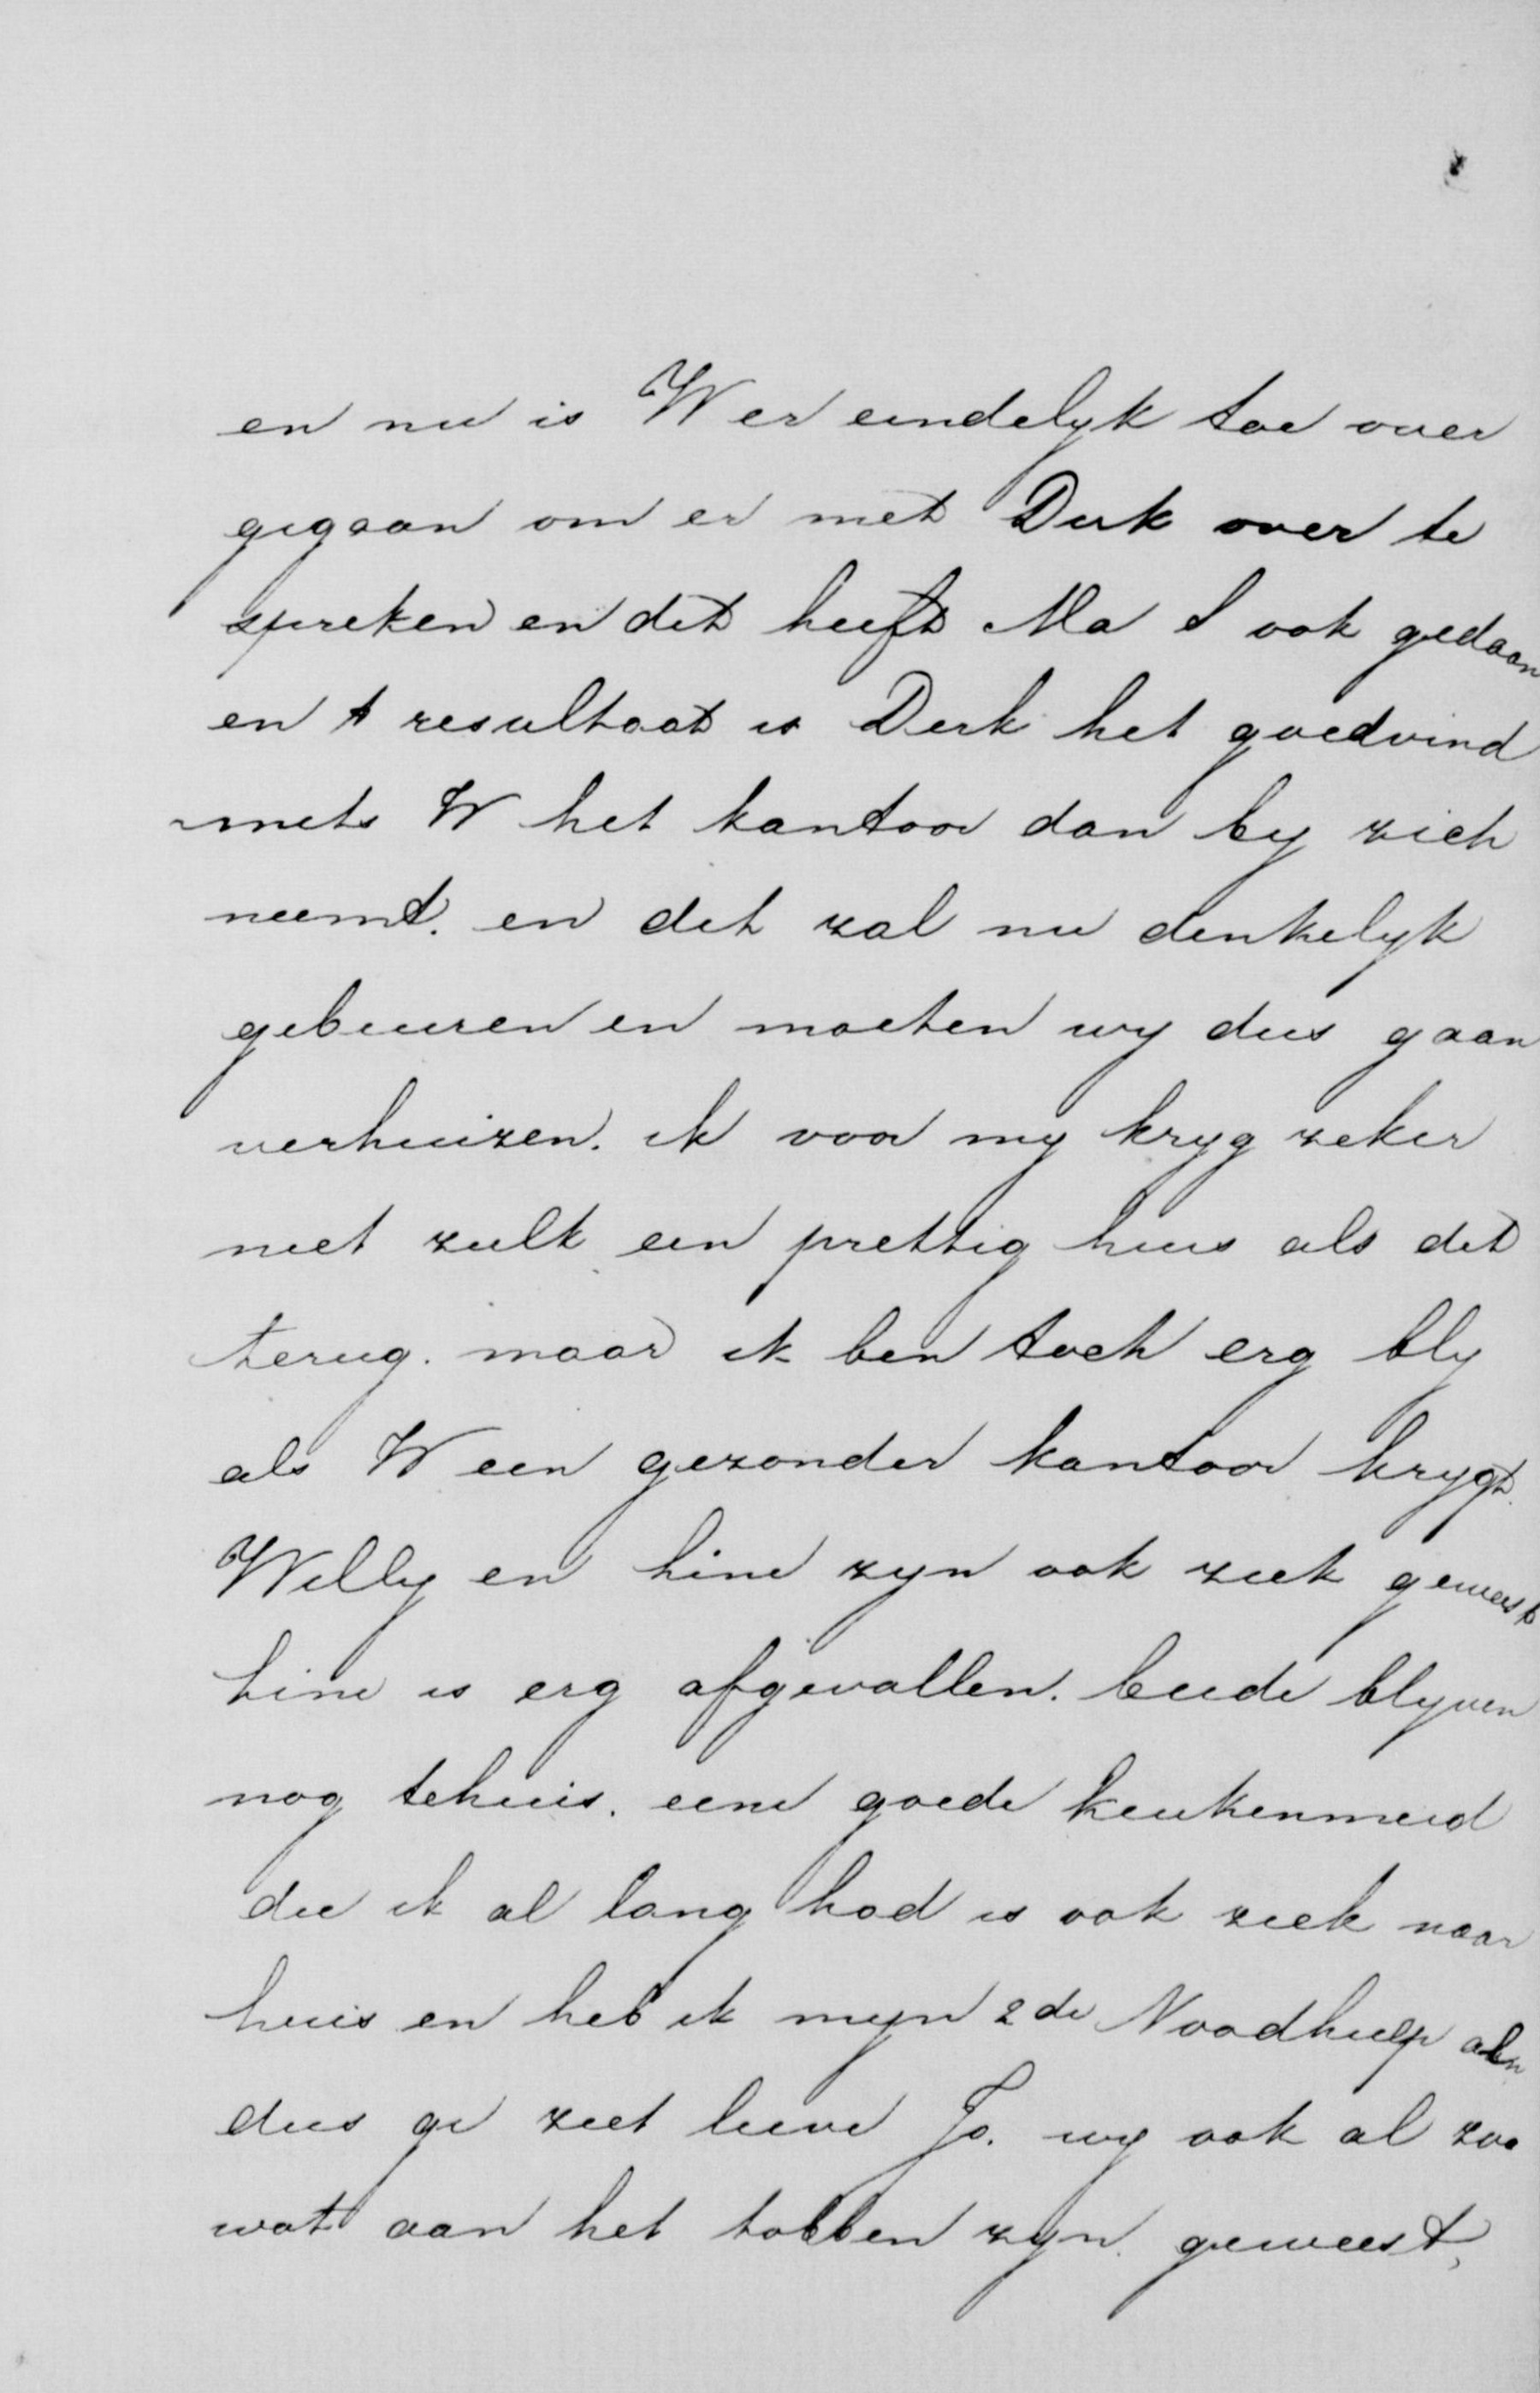 en nu is W er eindelyk toe over
gegaan om er met Dirk over te
spreken en dit heeft Ma S ook gedaan
en t resultaat is Dirk het goedvind
mits W het kantoor dan by zich
neemt. en dit zal nu denkelyk
gebeuren en moeten wy dus gaan
verhuizen. ik voor my kryg zeker
niet zulk een prettig huis als dit
terug. maar ik ben toch erg bly
als W een gezonder kantoor krygt.
Willy en Line zyn ook ziek geweest
Line is erg afgevallen. beide blyven
nog tehuis. eene goede keukenmeid
die ik al lang had is ook ziek naar
huis en heb ik myn 2de Noodhulp
dus ge ziet lieve Jo. wy ook al zoo
wat aan het tobben zyn geweest,